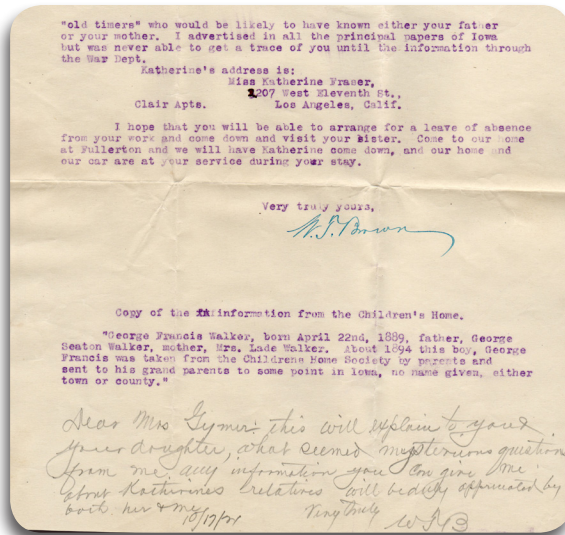 "old timers" who would be likely to have known either your father
or your mother. I advertised in all the principal papers of Iowa
but was never able to get a trace of you until the information through
the War Dept.
Katherine's address is:
Miss Katherine Fraser,
1207 West Eleventh St.,
Clair Apts. Los Angeles, Calif.
I hope that you will be able to arrange for a leave of absence
from your work and come down and visit your sister. Come to our home
at Fullerton and we will have Katherine come down, and our home and
our car are at your service during your stay.
Very truly yours,
W.T. Brown
Copy of the information from the Children's Home.
"George Francis Walker, born April 22nd, 1889, father, George
Seaton Walker, mother, Mrs. Lade Walker. About 1894 this boy, George
Francis was taken from the Childrens Home Society by parents and
sent to his grand parents to some point in Iowa, no name given, either
town or county."
Dear Mrs Gymer: this will explain to you &
your daughter, what seemed mysterious question
from me, any information you can give me
about Katherines relatives will be duly appreciated by
both her & my
10/17/21 Very Truly
W T B